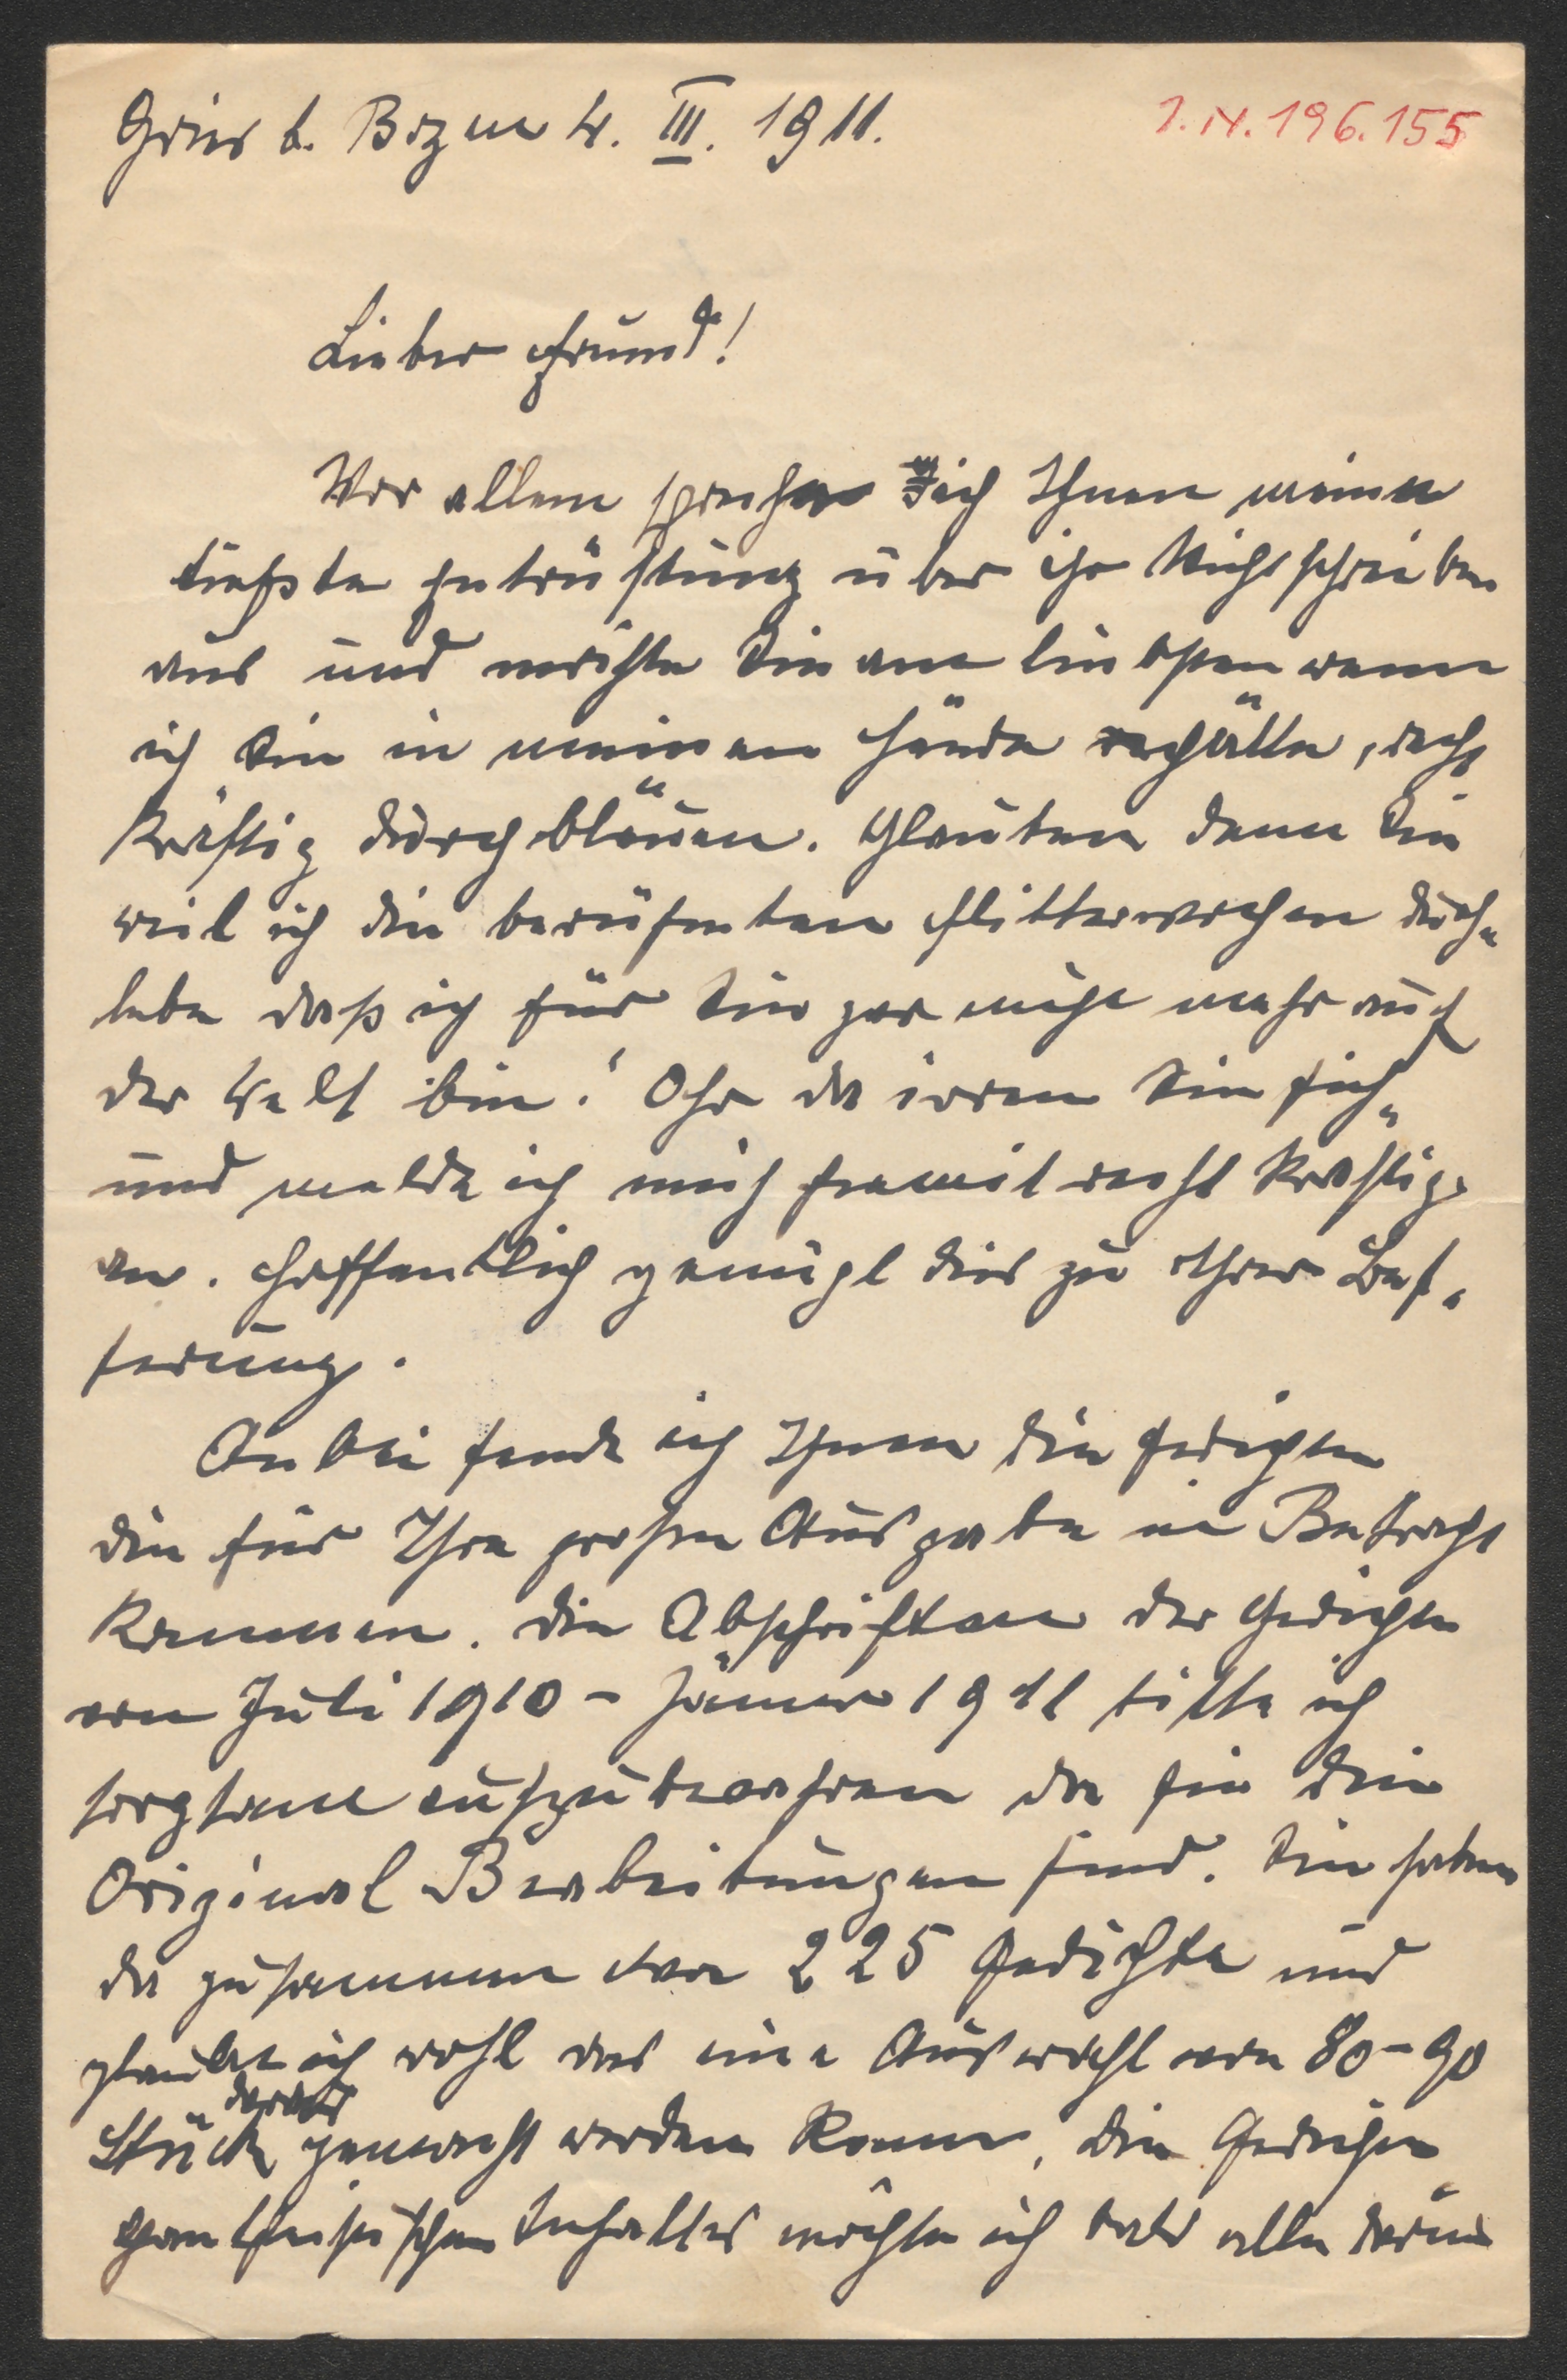 Gries b. Bozen 4. III. 1911.
I.N. 196.155
Lieber Freund!
Vor allem spreche ich Ihnen meine
tiefste Entrüstung über ihr Nichtschreiben
aus und möchte Sie am liebsten wenn
ich Sie in meinen Hände hätte, recht
kräftig durchbläuen. Glauben denn Sie
weil ich die berühmten Flitterwochen durch„
lebe daß ich für Sie gar nicht mehr auf
der Welt bin! Oho da irren Sie sich„
und melde ich mich hiemit recht kräftig
an. Hoffentlich genügt dies zu Ihrer Bes„
serung.
Anbei sende ich Ihnen die Gedichte
die für Ihre große Ausgabe in Betracht
kommen. Die Abschriften der Gedichte
vom Juli 1910 - Jänner 1911 bitte ich
sorgsam aufzubewahren da sie die
Original Bearbeitungen sind. Sie haben
da zusammen etwa 225 Gedichte und
glaube ich wohl das eine Auswahl von 80-90
Stück daraus gemacht werden kann, die Gedichte
pantheistischen Inhaltes möchte ich bald alle darin